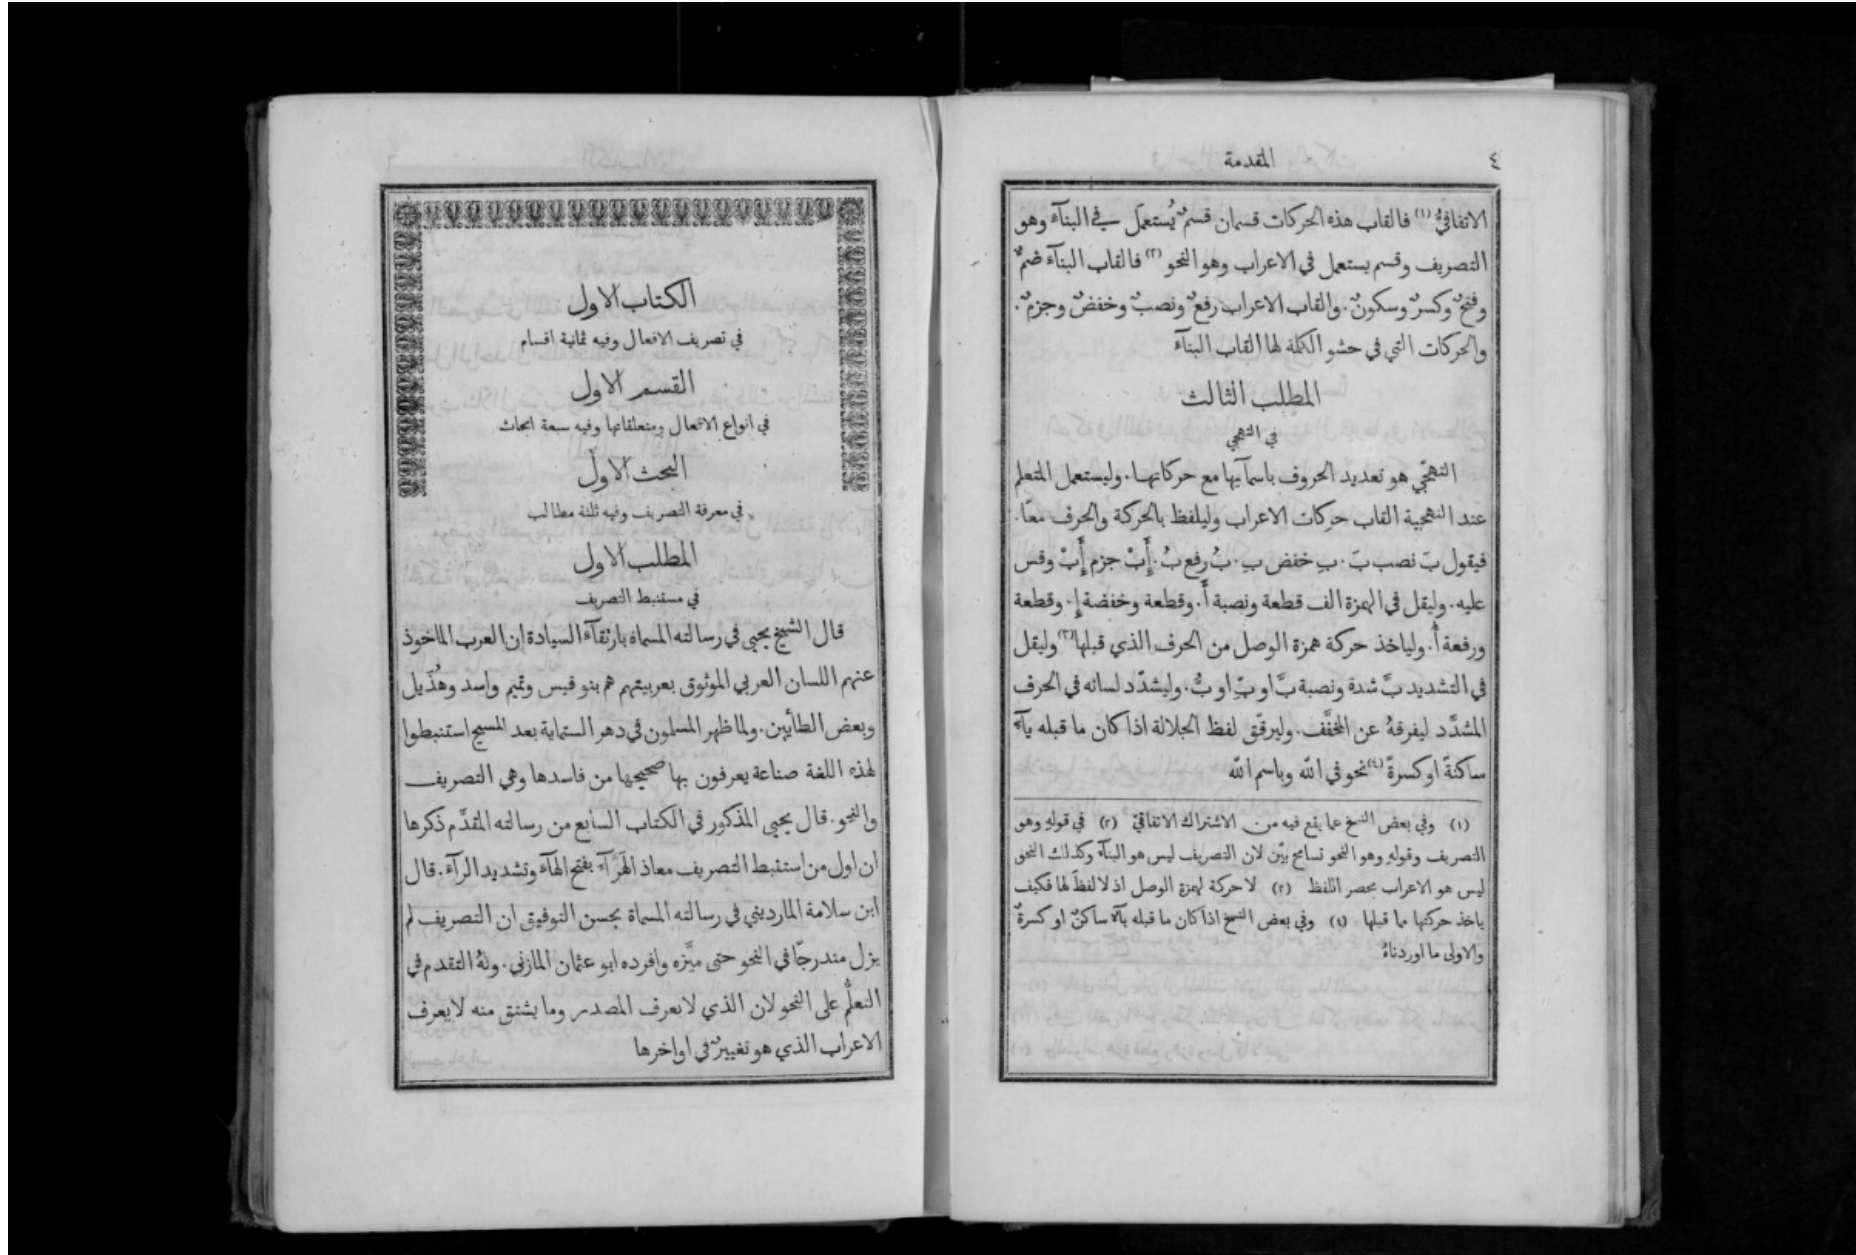 ٤
المقدمة
الاتفاقيُّ (١) فالقاب هذه الحركات قسمان قسمٌ يُستعمَل في البنآء وهو
التصريف وقسم يستعمل في الاعراب وهو النحو (٢) فالقاب البنآء ضمٌّ
وفتحٌ وكسرٌ وسكونٌ. والقاب الاعراب رفعٌ ونصبٌ وخفضٌ وجزمٌ.
والحركات التي في حشو الكلمة لها القاب البنآء
المطلب الثالث
في التهجي
التهجّي هو تعديد الحروف باسمآيها مع حركاتها. وليستعمل المتعلم
عند التهجية القاب حركات الاعراب وليلفظ بالحركة والحرف معًا.
فيقول بَ نصب بَ. بِ خفض بِ. بُ رفع بُ. إَبْ جزم إَبْ وقس
عليه. وليقل في الهمزة الف قطعة ونصبة أَ. وقطعة وخفضة إِ. وقطعة
ورفعة أُ. ولياخذ حركة همزة الوصل من الحرف الذي قبلها (٣) وليقل
في التشديد بَّ شدة ونصبة بَّ او بِّ او بُّ. وليشدّد لسانه في الحرف
المشدَّد ليفرقهُ عن المخفَّف. وليرقّق لفظ الجلالة اذا كان ما قبله يآء
ساكنةً او كسرةً (٤) نحو في الله وباسم الله
(١) وفي بعض النسخ عما يقع فيه من الاشتراك الاتفاقيّ (٢) في قولهِ وهو
التصريف وقولهِ وهو النحو تسامح بيّن لان التصريف ليس هو البنآء وكذلك النحو
ليس هو الاعراب بحصر اللفظ (٣) لا حركة لهمزة الوصل اذ لا لفظَ لها فكيف
ياخذ حركتها مما قبلها (٤) وفي بعض النسخ اذا كان ما قبله يآء ساكنٌ او كسرةٌ
والاولى ما اوردناهُ
الكتاب الاول
في تصريف الافعال وفيه ثمانية اقسام
القسم الاول
في انواع الافعال ومتعلقاتها وفيه سبعة ابحاث
البحث الاول
في معرفة التصريف وفيه ثلثة مطالب
المطلب الاول
في مستنبط التصريف
قال الشيخ يحيى في رسالته المسماة بارتقآء السيادة ان العرب الماخوذ
عنهم اللسان العربي الموثوق بعربيتهم هم بنو قيس وتميم واسد وهُذَيل
وبعض الطآئيين. ولما ظهر المسلمون في دهر الستماية بعد المسيح استنبطوا
لهذه اللغة صناعة يعرفون بها صحيحها من فاسدها وهي التصريف
والنحو. قال يحيى المذكور في الكتاب السابع من رسالته المقدَّم ذكرها
ان اول من استنبط التصريف معاذ الهَرَّآء بفتح الهآء وتشديد الرآء. قال
ابن سلامة المارديني في رسالته المسماة بحسن التوفيق ان التصريف لم
يزل مندرجًا في النحو حتى ميَّزه وافرده ابو عثمان المازني. ولهُ التقدم في
التعلُّم على النحو لان الذي لا يعرف المصدر وما يشتق منه لا يعرف
الاعراب الذي هو تغييرٌ في اواخرها